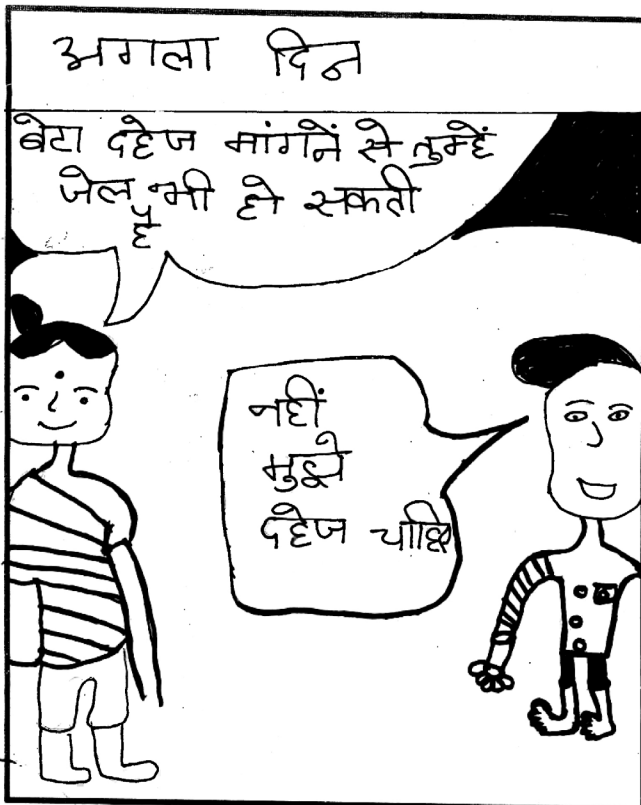 अगला दिन
बेटा दहेज मांगनें से तुम्हें
जेल भी हो सकती
है
नहीं
मुझे
दहेज चाहिए